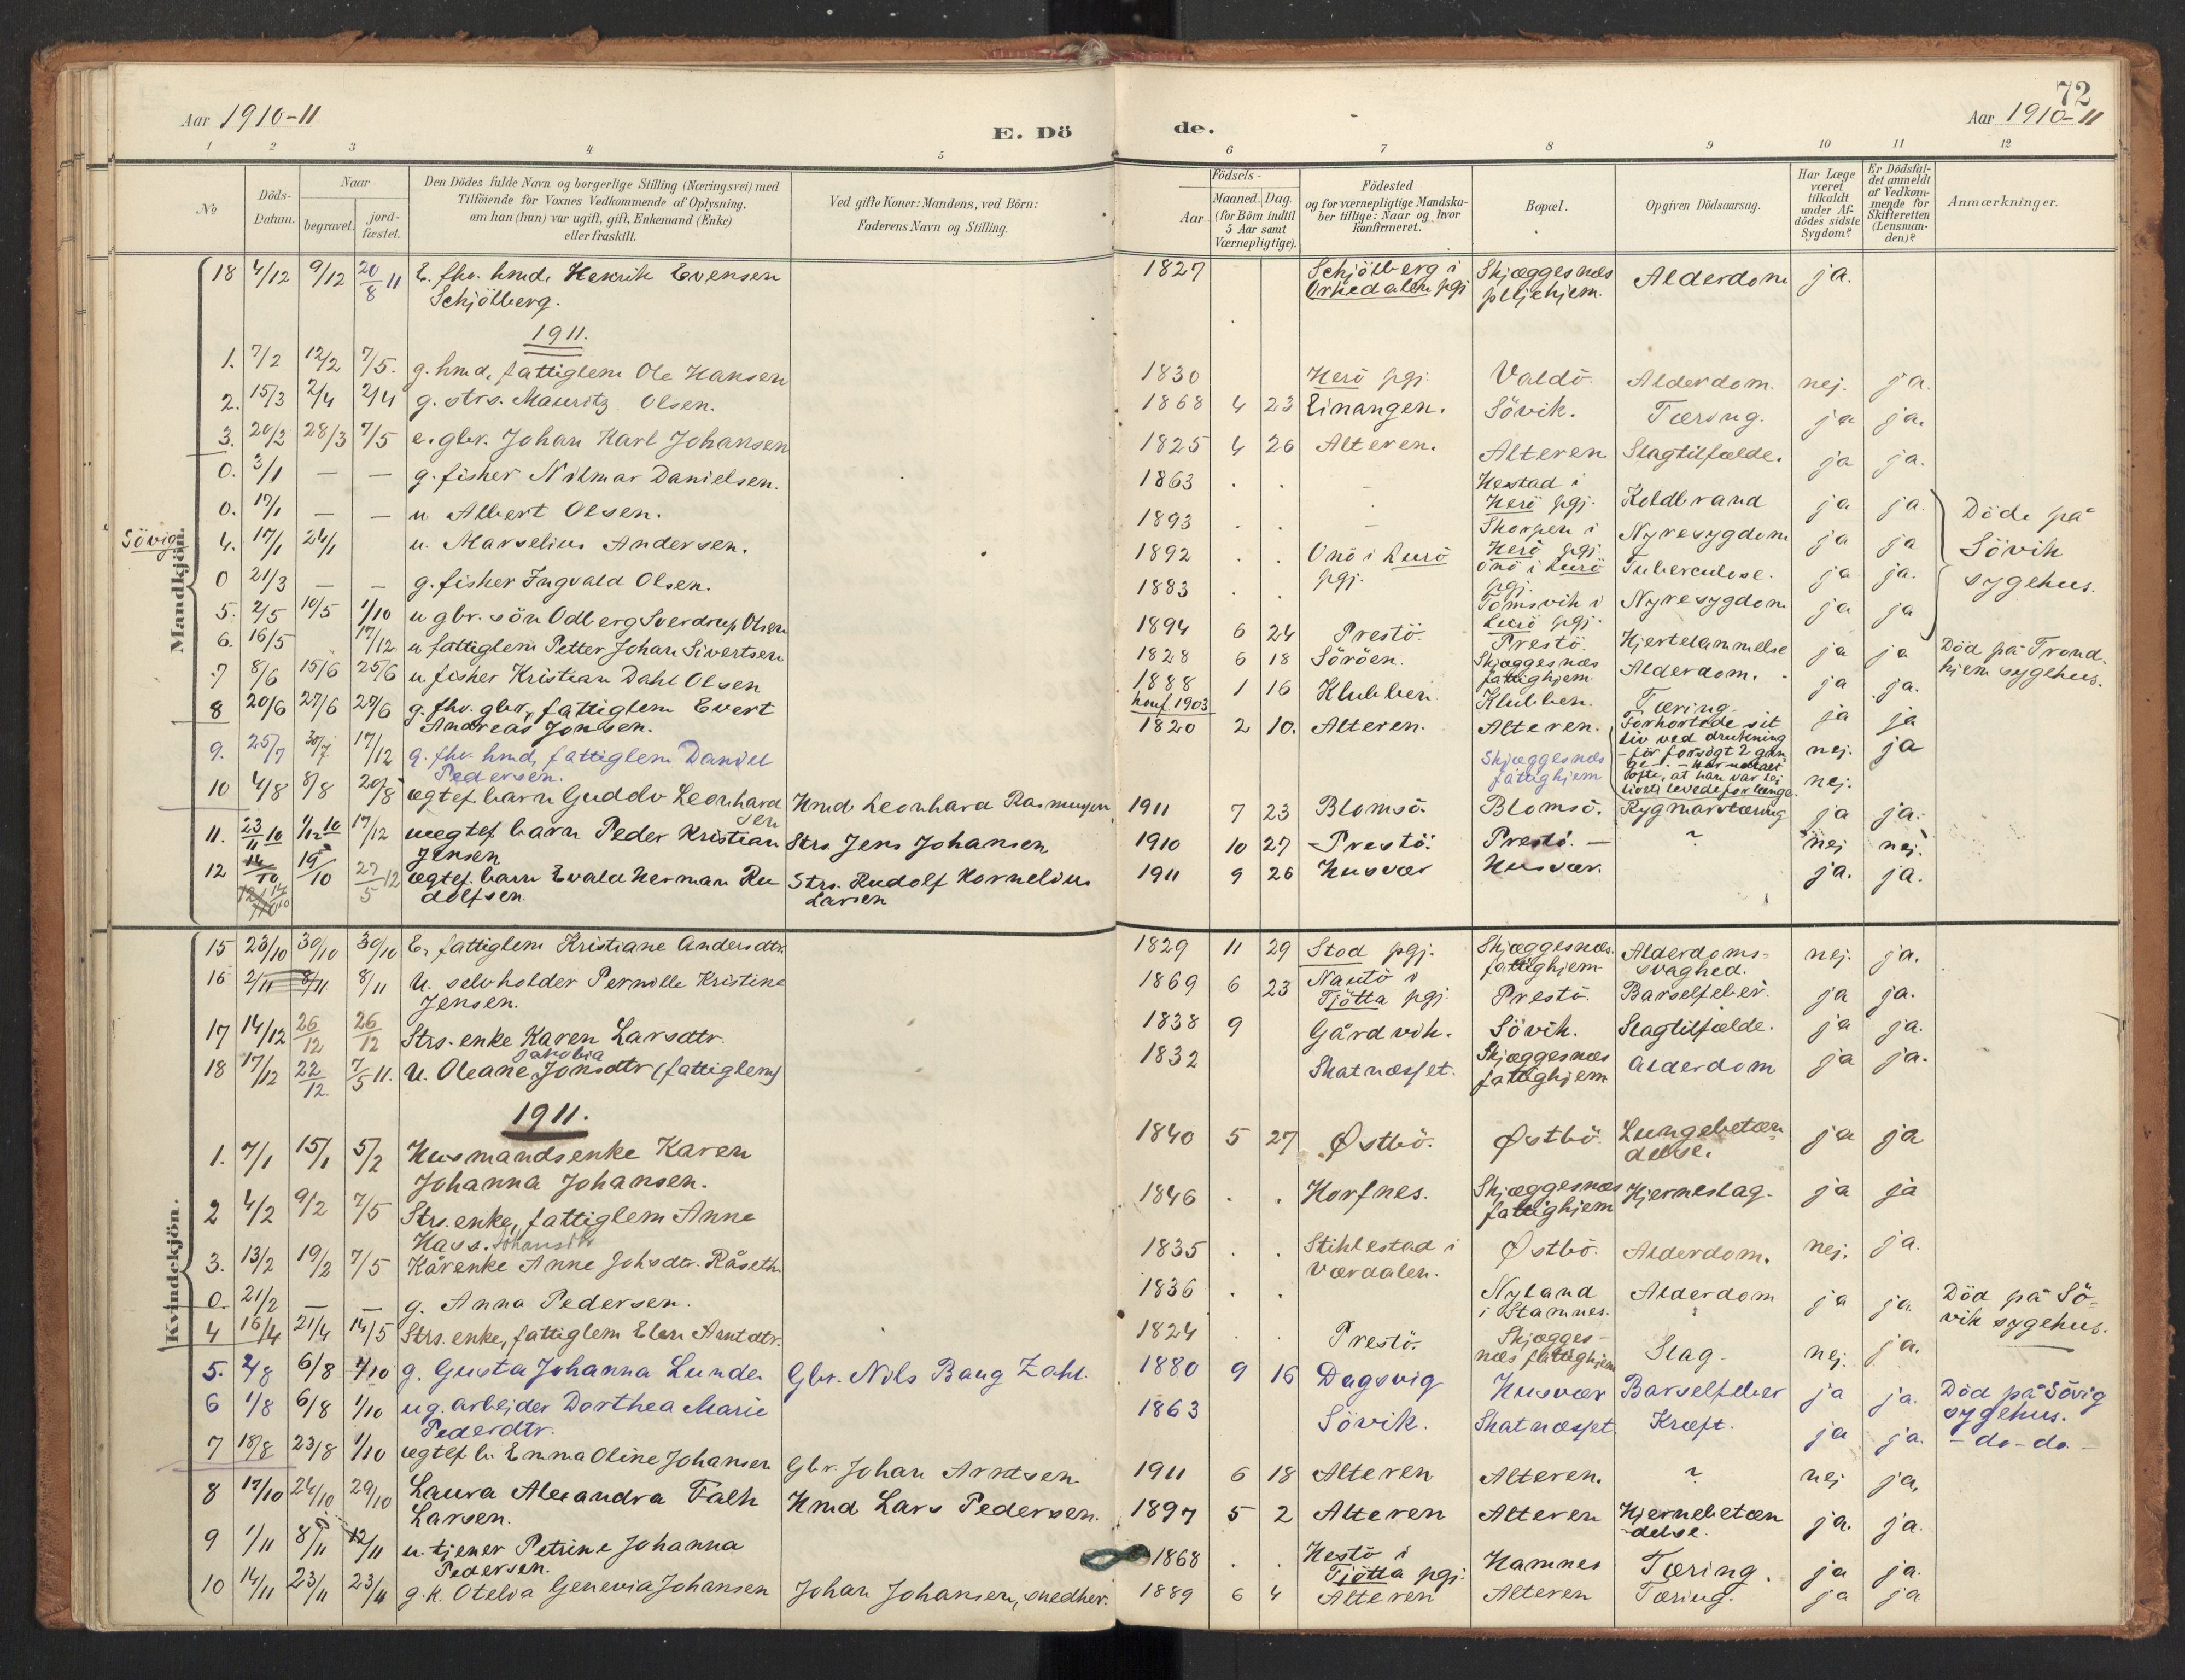 72
Aar 1910-11
E. Dö
de.
Aar 1910-11
1 2 3 4 5 6 7 8 9 10 11 12
No
Döds-Datum.
Naar
begravet.
jordfæstet.
Den Dödes fulde Navn og borgerlige Stilling (Næringsvei) med
Tilföiende for Voxnes Vedkommende af Oplysning,
om han (hun) var ugift, gift, Enkemand (Enke)
eller fraskilt.
Ved gifte Koner: Mandens, ved Börn:
Faderens Navn og Stilling.
Födsels-
Aar.
Maaned. Dag.
(for Börn indtil
5 Aar samt
Værnepligtige).
Födested
og for værnepligtige Mandskaber tillige: Naar og hvor
konfirmeret.
Bopæl.
Opgiven Dödsaarsag.
Har Læge
været
tilkaldt
under Afdödes sidste
Sygdom?
Er Dödsfaldet anmeldt
af Vedkommende for
Skifteretten
(Lensmanden)?
Anmærkninger.
Mandkjön.
18 4/12 9/12 20/8 11 E. fhv. hmd. Henrik Evensen Schjölberg. 1827 Schjölberg i Orkedalen pgj Skjæggesnæs plejehjem. Alderdom ja.
1911.
1. 7/2 12/2 7/5. g. hmd, fattiglem Ole Hansen 1830 Herö pgj. Valdö. Alderdom. nej. ja.
2. 15/3 2/4 2/4 g. strs. Mauritz Olsen. 1868 4 23 Einangen. Sövik. Tæring. ja ja.
3. 20/3 28/3 7/5 e. gbr. Johan Karl Johansen 1825 4 26 Alteren. Alteren Slagtilfælde. ja ja.
0. 3/1 — — g. fisher Nilmar Danielsen. 1863 . . - Hestad i Herö pgj. Koldbrand ja ja.
0. 17/1 — — u. Albert Olsen. 1893 . . - Skorpen i Herö pgj. Nyresygdom ja ja
Döde på Sövik sygehus.
Sövig
4. 17/1 24/1 u. Marselius Andersen. 1892 . . Onö i Lurö pgj. Onö i Lurö pgj. Tuberculose. ja ja.
0 21/3 — — g. fisher Ingvald Olsen. 1883 . . Tomsvik i Lurö pgj. Nyresygdom ja ja
5. 2/5 10/5 1/10 u gbr. sön Odberg Sverdrup Olsen 1894 6 24 Prestö. Prestö. Hjertelammelse ja ja Död på Trondhjem sygehus.
6. 16/5 17/12 u. fattiglem Petter Johan Sivertsen 1828 6 18 Söröen. Skjæggesnæs fattighjem Alderdom. ja ja.
7 8/6 15/6 25/6 u. fisher Kristian Dahl Olsen 1888 konf. 1903 1 16 Klubben. Klubben. Tæring. ja ja
8 20/6 27/6 27/6 g. fhv. gbr, fattiglem Evert Andreas Jonsen. 1820 2 10. Alteren. Alteren.
9. 25/7 30/7 17/12 g. fhv. hmd, fattiglem Daniel Pedersen. Skjæggesnæs fattighjem Forkortede sit liv ved drukning - för forsögt 2 gan nej. ja
10 4/8 8/8 20/8 ægtef. barn Guddv Leonhardsen Hmd Leonhard Rasmussen 1911 7 23 Blomsö. Blomsö. Rygmarvtæring ja ja.
11. 23/11 10 1/12 10 17/12 uægtef barn Peder Kristian Jensen Strs. Jens Johansen 1910 10 27 Prestö. Prestö. — ? nej nej.
12 14/10 19/10 27/5 12 ægtef. barn Evald Herman Rudolfsen. Strs. Rudolf Kornelius Larsen 1911 9 26 Husvær Husvær. ja. ja.
Kvindekjön.
15 23/10 30/10 30/10 E. fattiglem Kristiane Andersdtr. 1829 11 29 Stod pgj. Skjæggesnæs. fattighjem Alderdomssvaghed. nej. ja.
16 2/11 8/11 8/11 U. selvholder Pernille Kristine Jensen. 1869 6 23 Nautö i Tjötta pgj. Prestö. Barselfeber. ja ja.
17 14/12 26/12 26/12 Strs. enke Karen Larsdtr. 1838 9 Gårdvik. Sövik. Slagtilfælde. ja ja.
18 17/12 22/12. 7/5 11. U. Oleane Jakobia Jonsdtr (fattiglem) 1832 Skatnæsset. Skjæggesnæs fattighjem Alderdom ja ja.
1911.
1. 7/1 15/1 5/2 Husmandsenke Karen Johanna Johansen. 1840 5 27 Østbö. Østbö. Lungebetændelse. ja ja
2 4/2 9/2 7/5 Strs. enke, fattiglem Anne Hass. Johansdtr 1846 . . Korfnes. Skjæggesnæs fattighjem Hjerneslag. ja ja
3. 13/2 19/2 7/5 Kårenke Anne Johsdtr. Råseth. 1835 . . Stiklestad i Værdalen. Østbö. Alderdom. nej. ja.
0. 21/2 — — g. Anna Pedersen. 1836 . . Nyland i Stamnes. Alderdom ja ja. Död på Sövik sygehus.
4 16/4 21/4 14/5 Strs. enke, fattiglem Elen Arntdtr. 1824 . . Prestö. Skjæggesnæs fattighjem Slag. nej. ja.
5. 2/8 6/8 1/10 g. Gusta Johanna Lunde. Gbr. Nils Baug Zahl. 1880 9 16 Dagsvig Husvær Barselfeber ja ja. Död på Sövig sygehus.
6 1/8 6/8 1/10 ug. arbejder Dorthea Marie Pederdtr. 1863 Sövik. Skatnæsset. Kræft. ja ja. - do - do -
7 18/8 23/8 1/10 ægtef. b. Emma Oline Johansen Gbr. Johan Arntsen. 1911 6 18 Alteren Alteren. ? nej ja.
8 17/10 24/10 29/10 Laura Alexandra Falk Larsen. Hmd Lars Pedersen. 1897 5 2 Alteren Alteren Hjernebetændelse. ja. ja.
9 1/11 8/11 12/11 u. tjener Petrine Johanna Pedersen. 1868 . . Hestö i Tjötta pgj. Hamnes Tæring. ja ja.
10 14/11 23/11 23/11 g. k. Otelia Genevia Johansen Johan Johansen, snedker. 1889 6 4 Alteren Alteren Tæring. ja ja